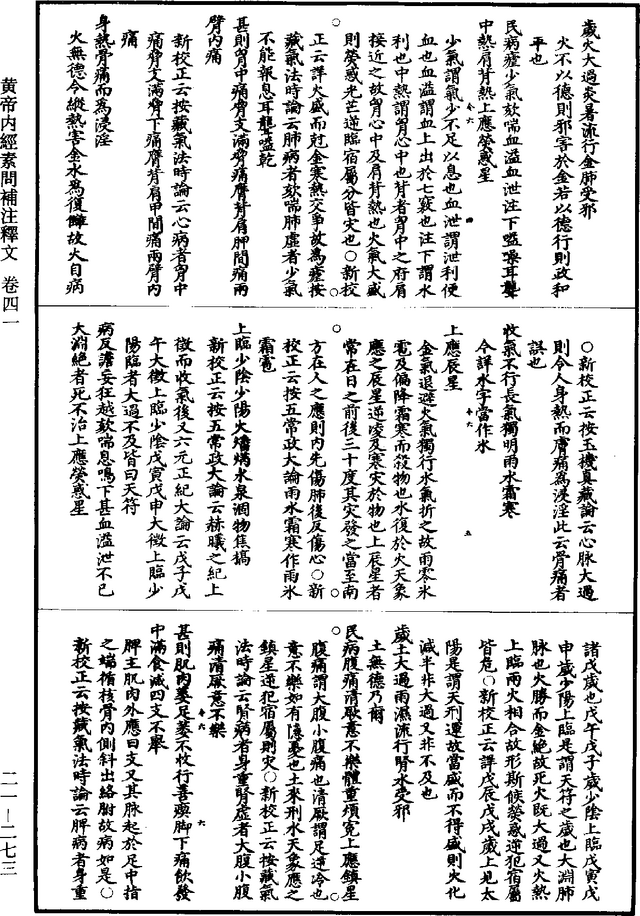 歲火大過炎暑流行金肺受邪
火不以德則邪害於金若以德行則政和
平也
民病瘧少氣欬喘血溢血泄注下嗌燥耳聾
中熱肩背熱上應熒惑星
少氣謂氣少不足以息也血泄謂泄利便
血也血溢謂血上出於七竅也注下謂水
利也中熱謂胷心中也背者胷中之府肩
接近之故胷心中及肩背熱也火氣大盛
則熒惑光芒逆臨宿屬分皆灾也○新校
正云詳火盛而尅金寒熱交爭故為瘧按
藏氣法時論云肺病者欬喘肺虛者少氣
不能報息耳聾嗌乾
甚則胷中痛脅支滿脅痛膺背肩胛間痛兩
臂內痛
新校正云按藏氣法時論云心病者胷中
痛脅支滿脅下痛膺背肩甲間痛兩臂內
痛
身熱骨痛而為浸淫
火無德令縱熱害金水為復讎故火自病
○新校正云按玉機真藏論云心脉大過
則令人身熱而膚痛為浸淫此云骨痛者
誤也
收氣不行長氣獨明雨水霜寒
今詳水字當作冰
上應辰星
金氣退避火氣獨行水氣折之故雨零冰
雹及偏降霜寒而殺物也水復於火天象
應之辰星逆凌及寒灾於物也上辰星者
常在日之前後三十度其灾發之當至南
方在人之應則內先傷肺後反傷心○新
校正云按五常政大論雨水霜寒作雨冰
霜雹
上臨少陰少陽火燔焫水泉涸物焦槁
新校正云按五常政大論云赫曦之紀上
徵而收氣後又六元正紀大論云戊子戊
午大徵上臨少陰戊寅戊申大徵上臨少
陽臨者大過不及皆曰天符
病反譫妄狂越欬喘息鳴下甚血溢泄不已
大淵絕者死不治上應熒惑星
諸戊歲也戊午戊子歲少陰上臨戊寅戊
申歲少陽上臨是謂天符之歲也大淵肺
脉也火勝而金絕故死火既大過又火熱
上臨兩火相合故形斯候熒惑逆犯宿屬
皆危○新校正云詳戊辰戊戌歲上見太
陽是謂天刑運故當盛而不得盛則火化
減半非大過又非不及也
歲土大過雨濕流行腎水受邪
土無德乃爾
民病腹痛清厥意不樂體重煩冤上應鎮星
腹痛謂大腹小腹痛也清厥謂足逆冷也
意不樂如有隱憂也土來刑水天象應之
鎮星逆犯宿屬則灾○新校正云按藏氣
法時論云腎病者身重腎虛者大腹小腹
痛清厥意不樂
甚則肌肉萎足萎不收行善瘈脚下痛飲發
中滿食減四支不舉
脾主肌肉外應曰支又其脉起於足中指
之端循核骨內側斜出絡胕故病如是○
新校正云按藏氣法時論云脾病者身重
黄帝內經素問補注釋文　卷四一
二一—二七三